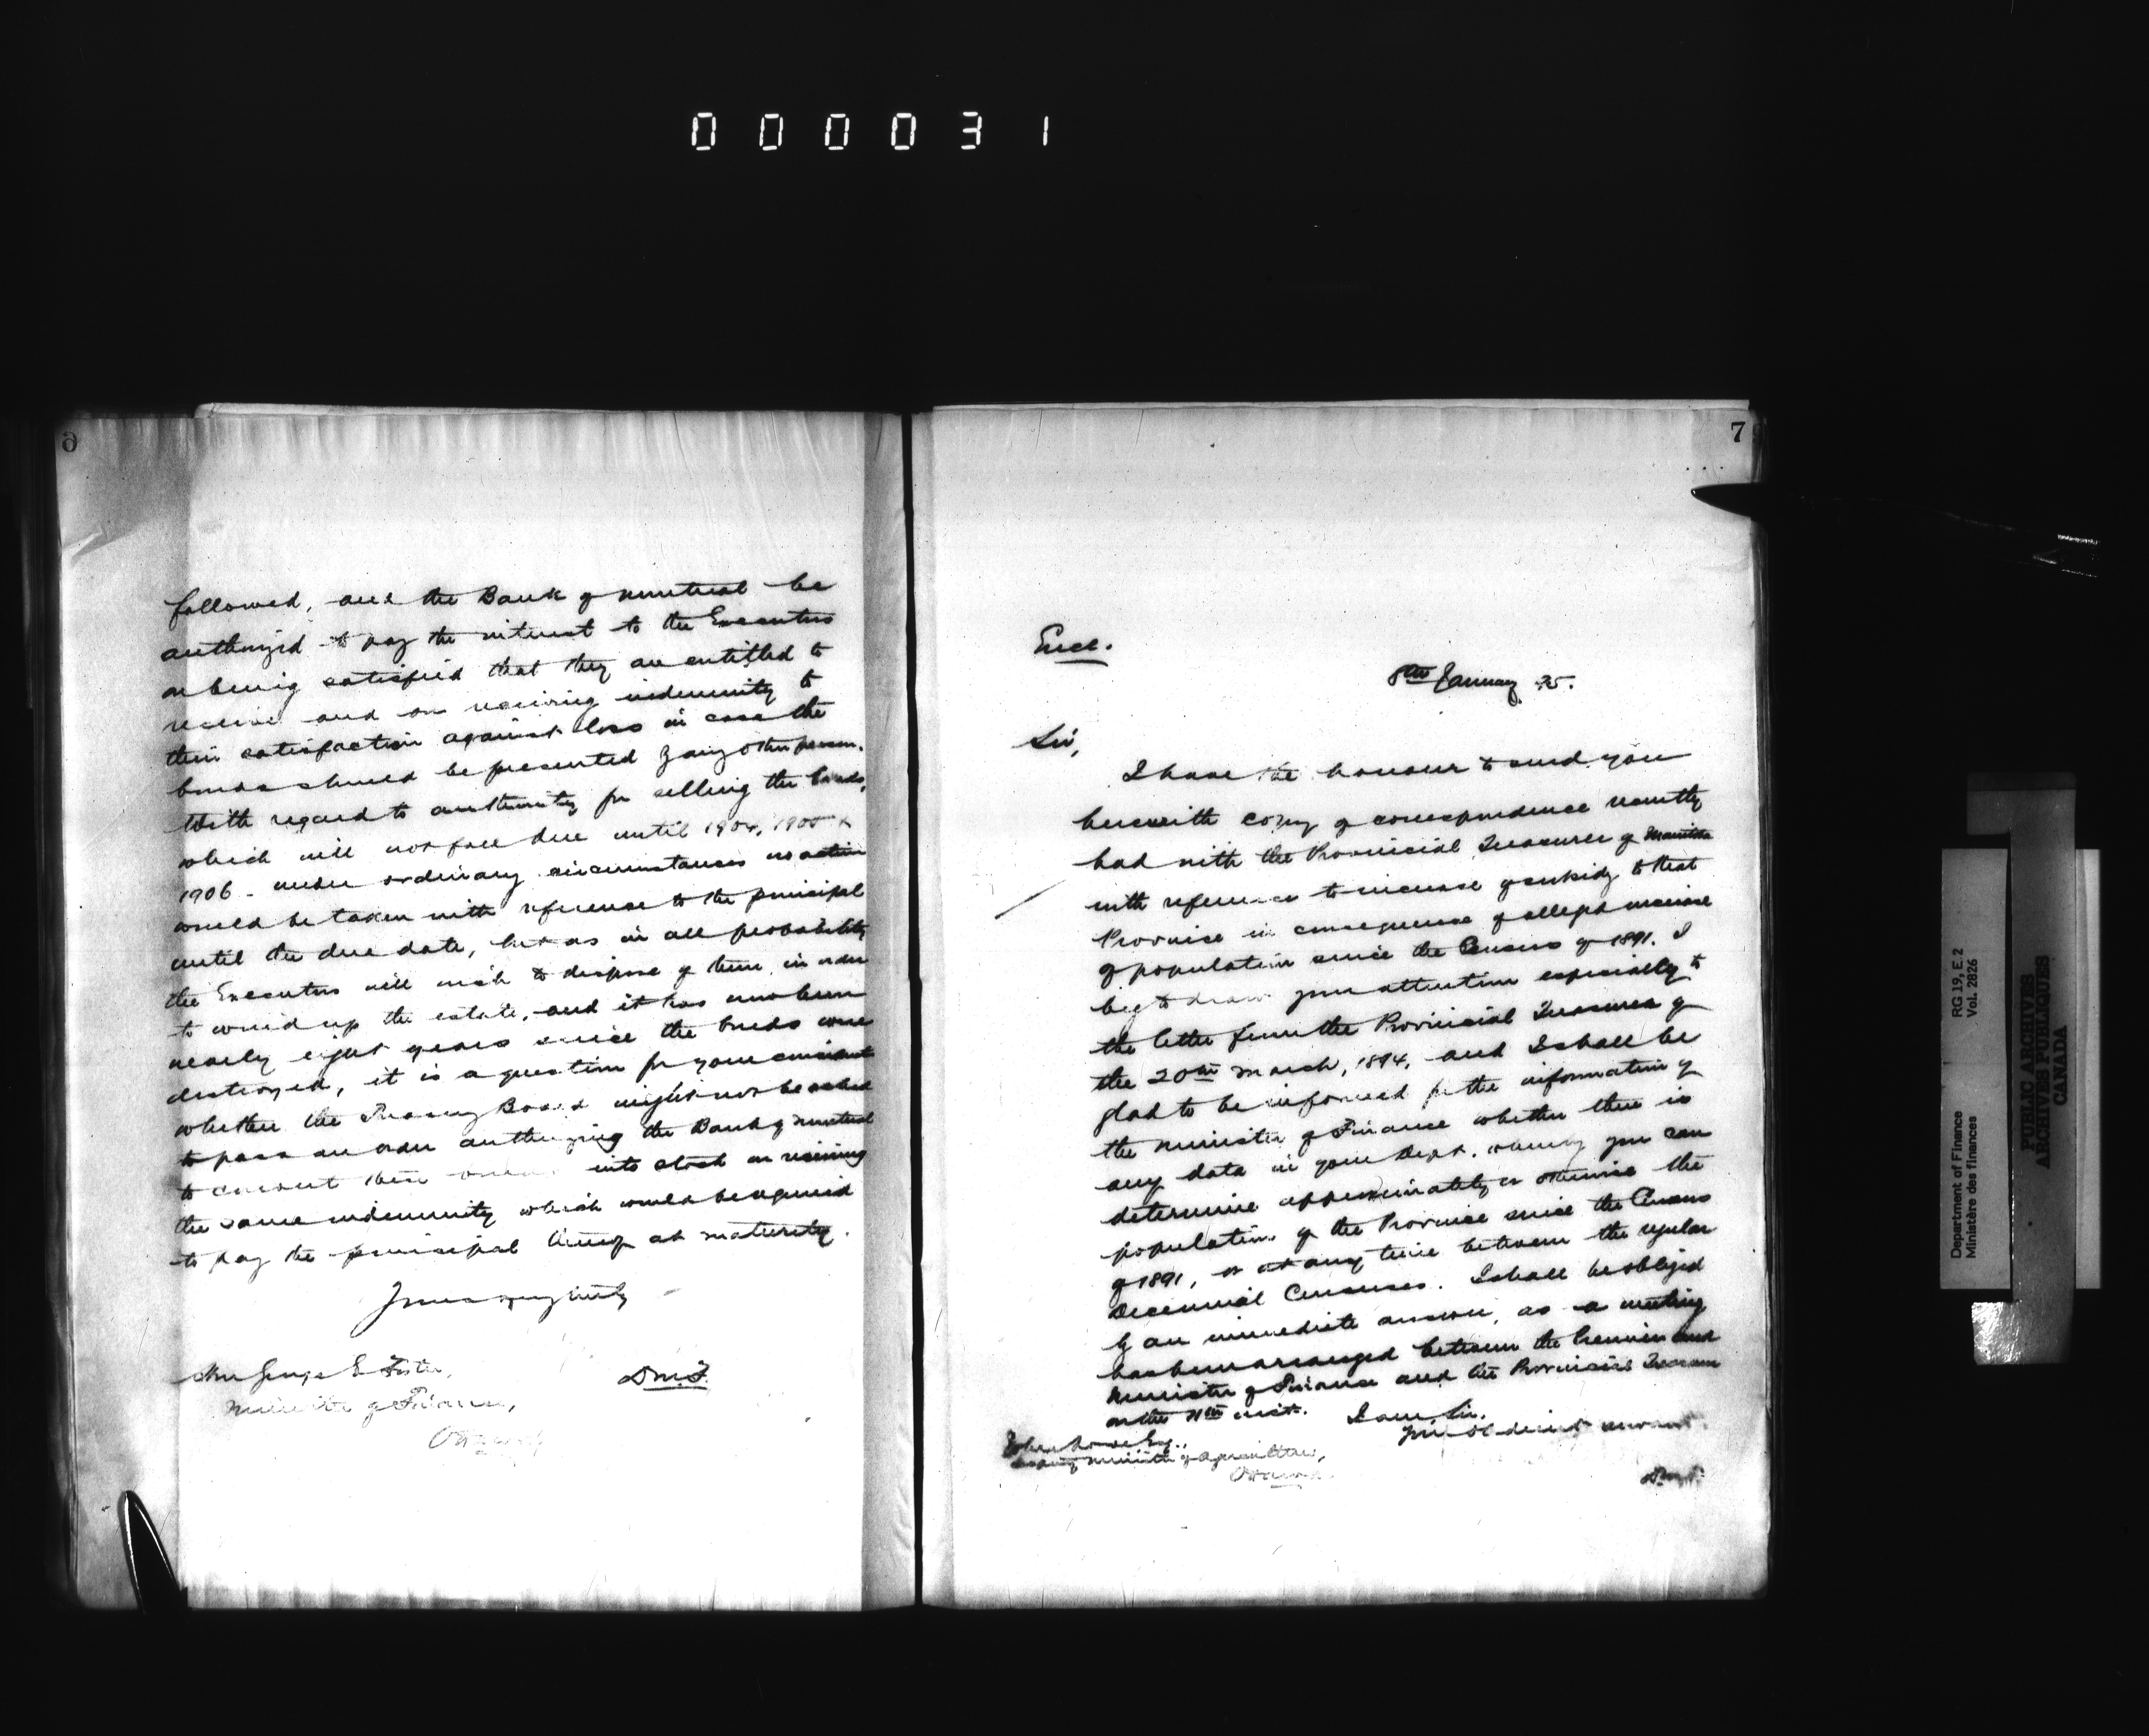 000031
6
followed, and the Bank of Montreal be
authorized to pay the interest to the Executors
on being satisfied that they are entitled to
receive and on receiving indemnity to
their satisfaction against loss in case the
bonds should be presented by any other person.
With regard to authority for selling the bonds,
which will not fall due until 1904, 1905 &
1906 - under ordinary circumstances no action
would be taken with reference to the principal
until the due date, but as in all probability
the Executors will wish to dispose of them in order
to wind up the estate, and it has now been
nearly eight years since the bonds were
destroyed, it is a question for your
whether the Treasury Board might not be asked
to pass an order authorizing the Bank of Montreal
to convert these into stock on receiving
the same indemnity which would be required
to pay the principal at maturity.
Yours very truly
Hon George E Foster,
Minister of Finance,
Ottawa
D.M.F.
7
Encl.
8th January 95.
Sir,
I have the honour to send you
herewith copy of correspondence recently
had with the Provincial Treasurer of Manitoba
with reference to increase of subsidy to that
Province in consequence of alleged increase
of population since the Census of 1891. I
beg to draw your attention especially to
the letter from the Provincial Treasurer of
the 20th March, 1894, and I shall be
glad to be informed for the information of
the Minister of Finance whether there is
any data in your Dept. whereby you can
determine approximately or otherwise the
population of the Province since the Census
of 1891, or at any time between the regular
Decennial Censuses. I shall be obliged
by an immediate answer, as a meeting
has been arranged between the Premier and
Minister of Finance and the Provincial Treasurer
on the 11th inst. I am, Sir,
Your obedient servant
Esq.,
Deputy Minister of Agriculture,
Ottawa
D.M.F.
Department of Finance RG 19, E.2
Ministère des finances Vol. 2826
PUBLIC ARCHIVES
ARCHIVES PUBLIQUES
CANADA